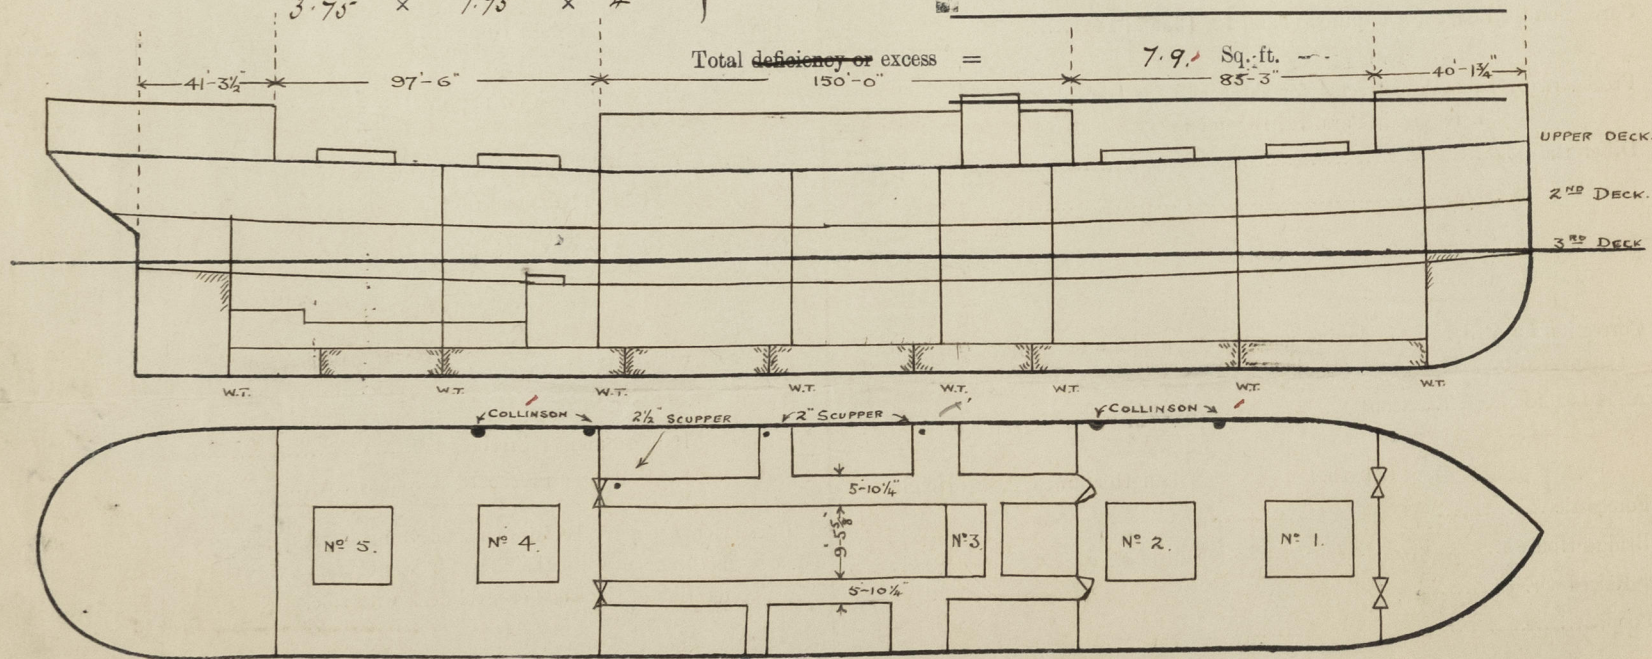 3·75 × 1·75 × 4
Total deficiency or excess = 7·9. Sq. ft.
41'-3½" 97'-6" 150'-0" 83'-3" 40'-1¾"
UPPER DECK.
2ND DECK.
3RD DECK
W.T. W.T. W.T. W.T. W.T. W.T. W.T. W.T.
COLLINSON 2½" SCUPPER 2" SCUPPER COLLINSON
5'-10¼"
No 5. No 4. 9'-5⅝" No 3 No 2. No 1.
5'-10¼"